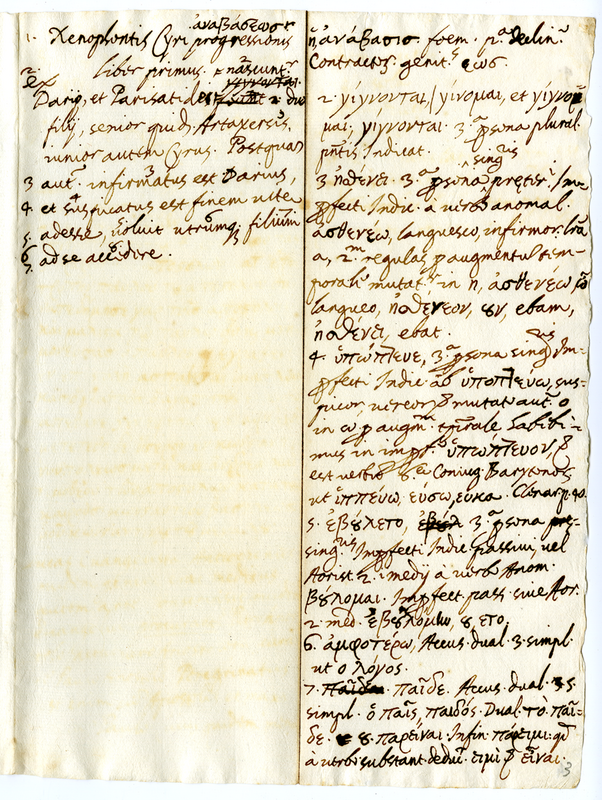 ἀναβασεωσ
1. Xenophontis Cyri progressionis
liber primus. nascunt.
2. Ex
Dario, et Parisatide 2. duo
filij, senior quid. Artaxersis,
iunior autem Cyrus. Postquam
3 aut. infirmatus est Darius,
4. et suspicatus est finem vitae
5. adesse, voluit utrumq; filium
6
7. ad se accidere.
ἡ ἀνάβασισ. foem. pa. declin.
Contractos. genit. εωσ.
2. γίγνονται, γίνομαι, et γίγνο
μαι, γίγνονται. 3.a psona plural.
pntis Indicat.
sing.ris
3 ἠσθενει. 3.a psona preter. Im-
pfecti. Indic. à verbo anomal.
ἀσθενεω, languesco, infirmor. lra
a, 2.m regulas p augmentu tem-
porali mutat. in η, ἀσθενέω ῶ
langueo, ἠσθενεον, ουν, ebam,
ἠσθένει, ebat.
ris
4. ὑπώπτευε, 3.a psona sing. Im-
pfecti Indic. ab ὑποπτεύω, sus-
picor, vereor & mutat aut. o
in ω p augm. tprale habebi-
mus in impf. ὑπώπτευον, &
est verbo Coniug. Barytonos
ut ἱππεύω, εύσω, ευκα. Clenar. p. 90.
5. ἐβούλετο, 3.a psona
sing.ris Impfecti Indic. passiui, vel
Aorist. 2. medij à verbo Anom.
βούλομαι. Impfect. pass. siue Aor.
2. med. ἐβουλομην, ου, ετο.
6. ἀμφοτέρω, Accus. dual. 3. simpl.
ut ο λόγος.
7. παῖδε. Accus. dual. 5
simpl. ὁ παῖς, παιδός. Dual. το. παῖ-
δε. 8. παρεῖναι. Infin. πάρειμι. qd
à verbi substant. deduc. ειμὶ εἶναι.
3